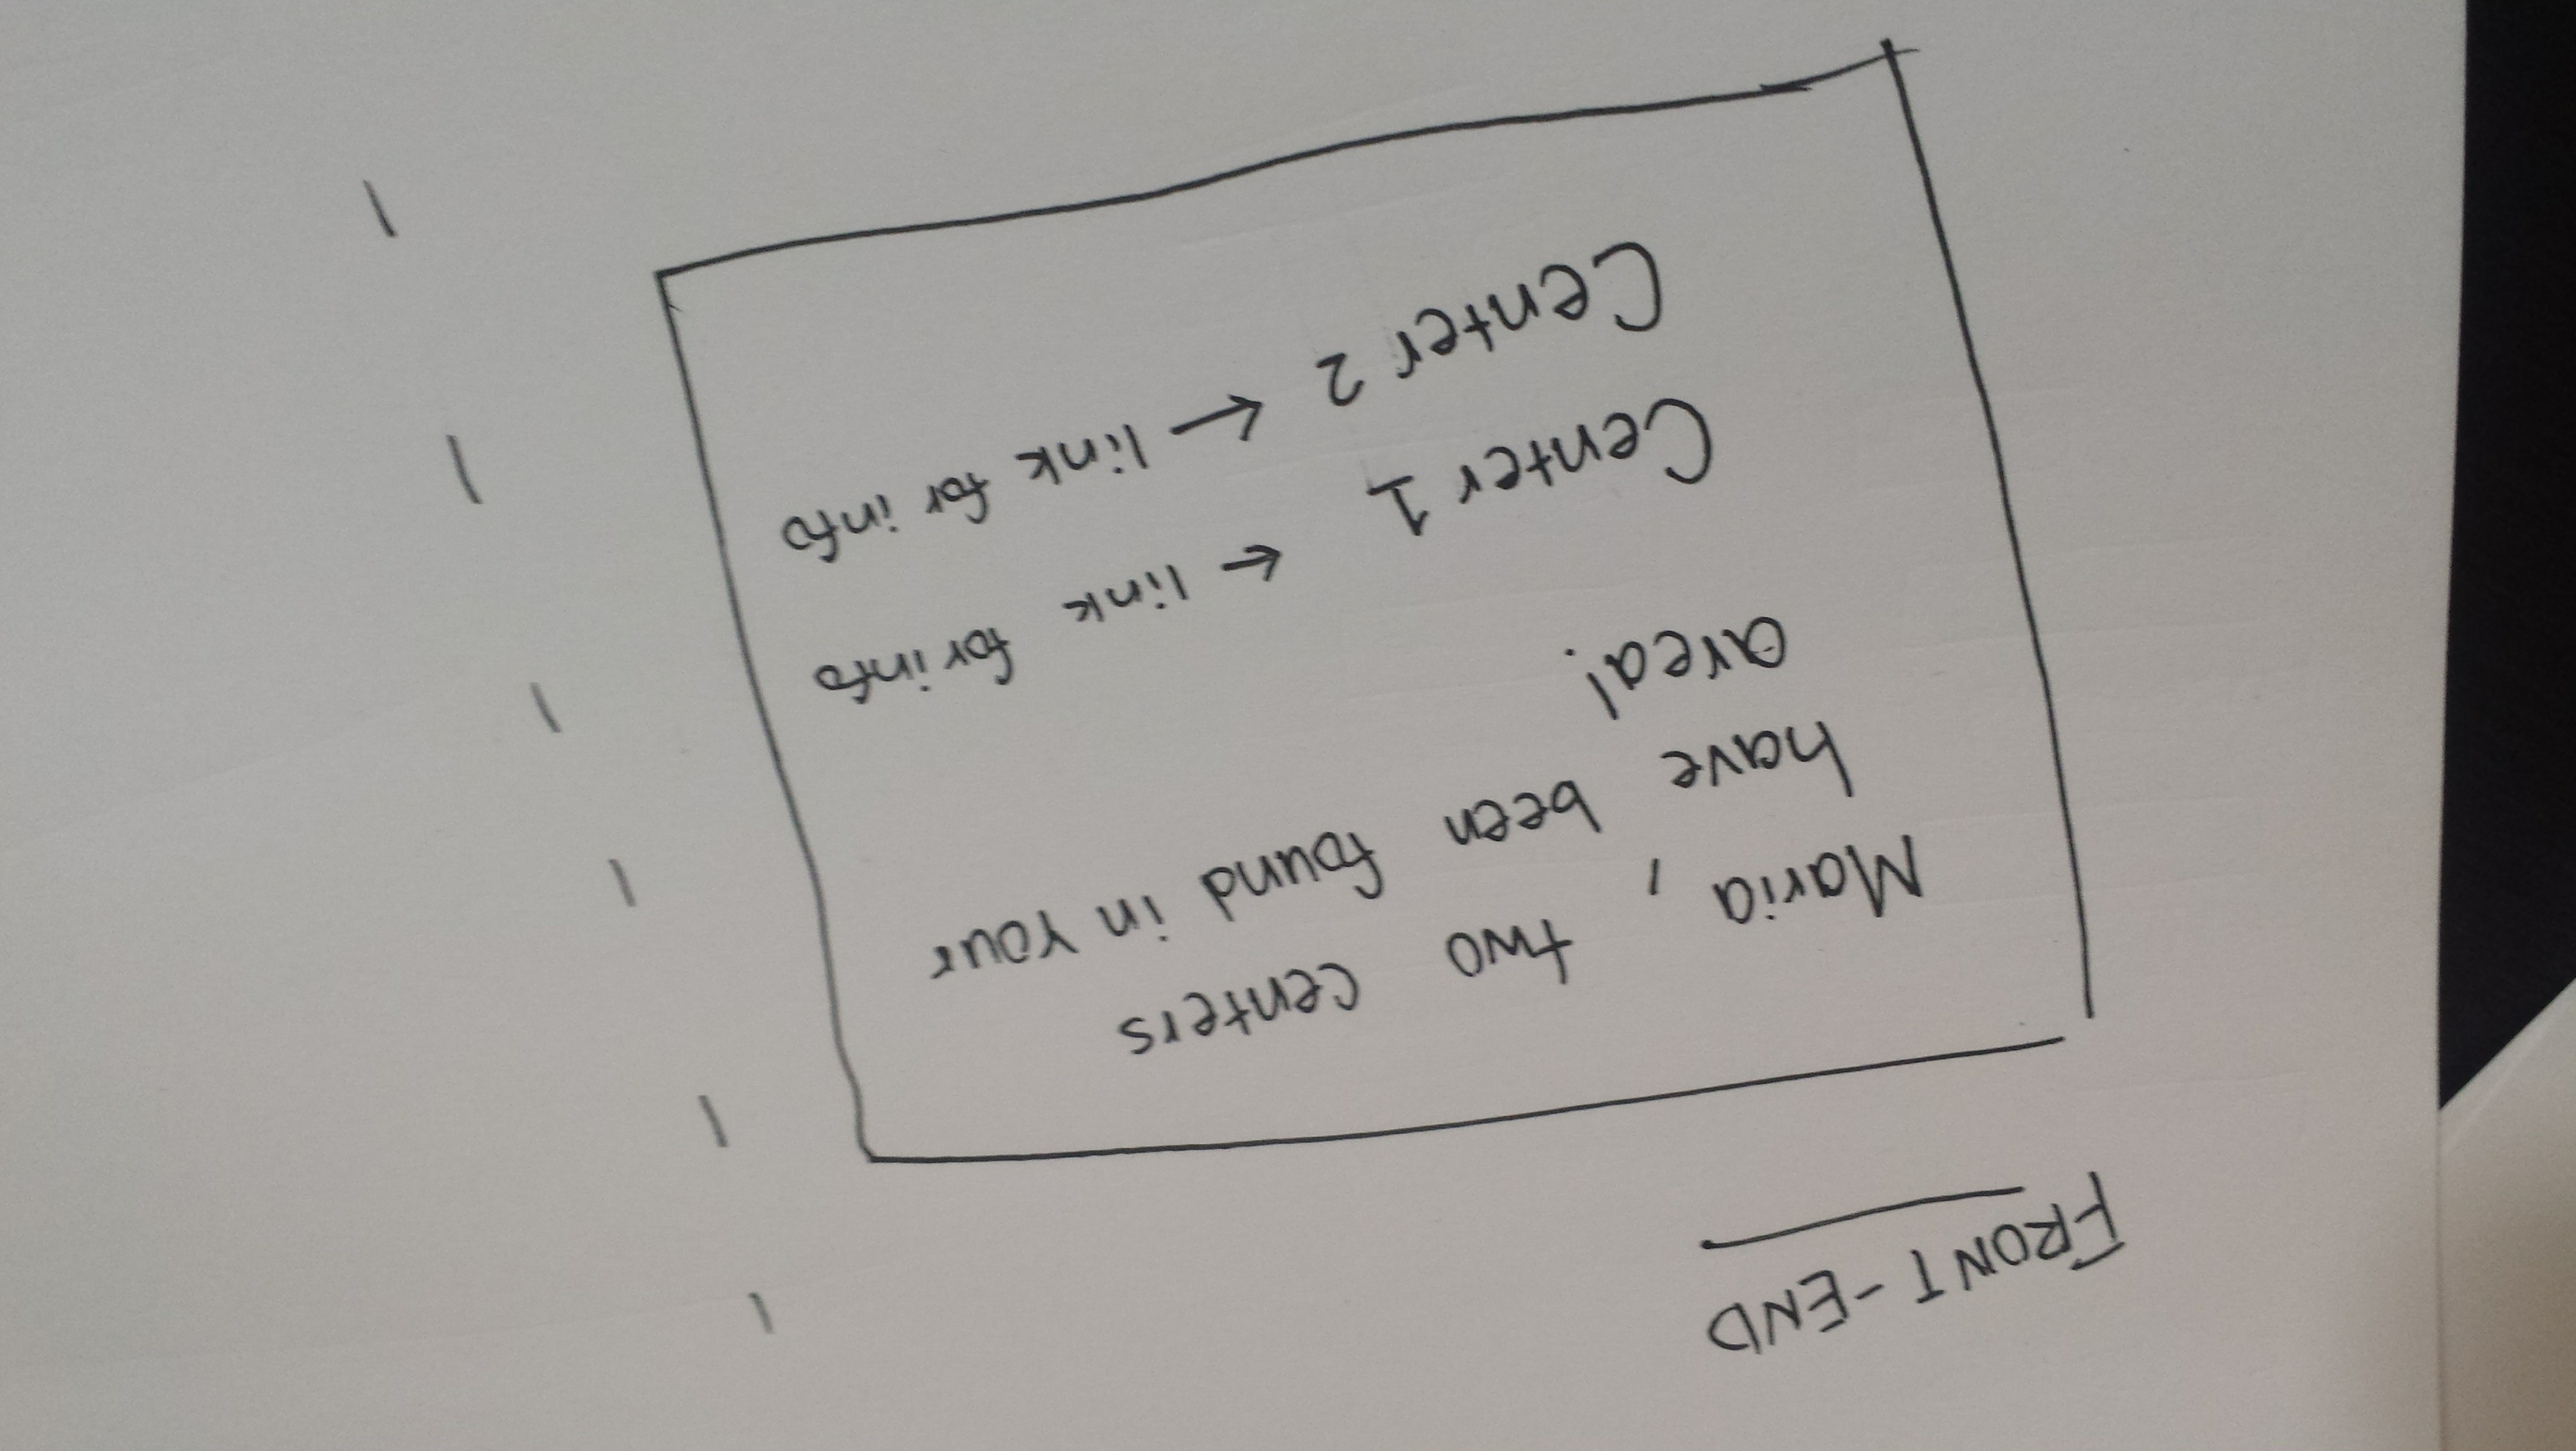 FRONT-END
Maria, two centers
have been found in your
area!
Center 1 ← link for info
Center 2 ← link for info